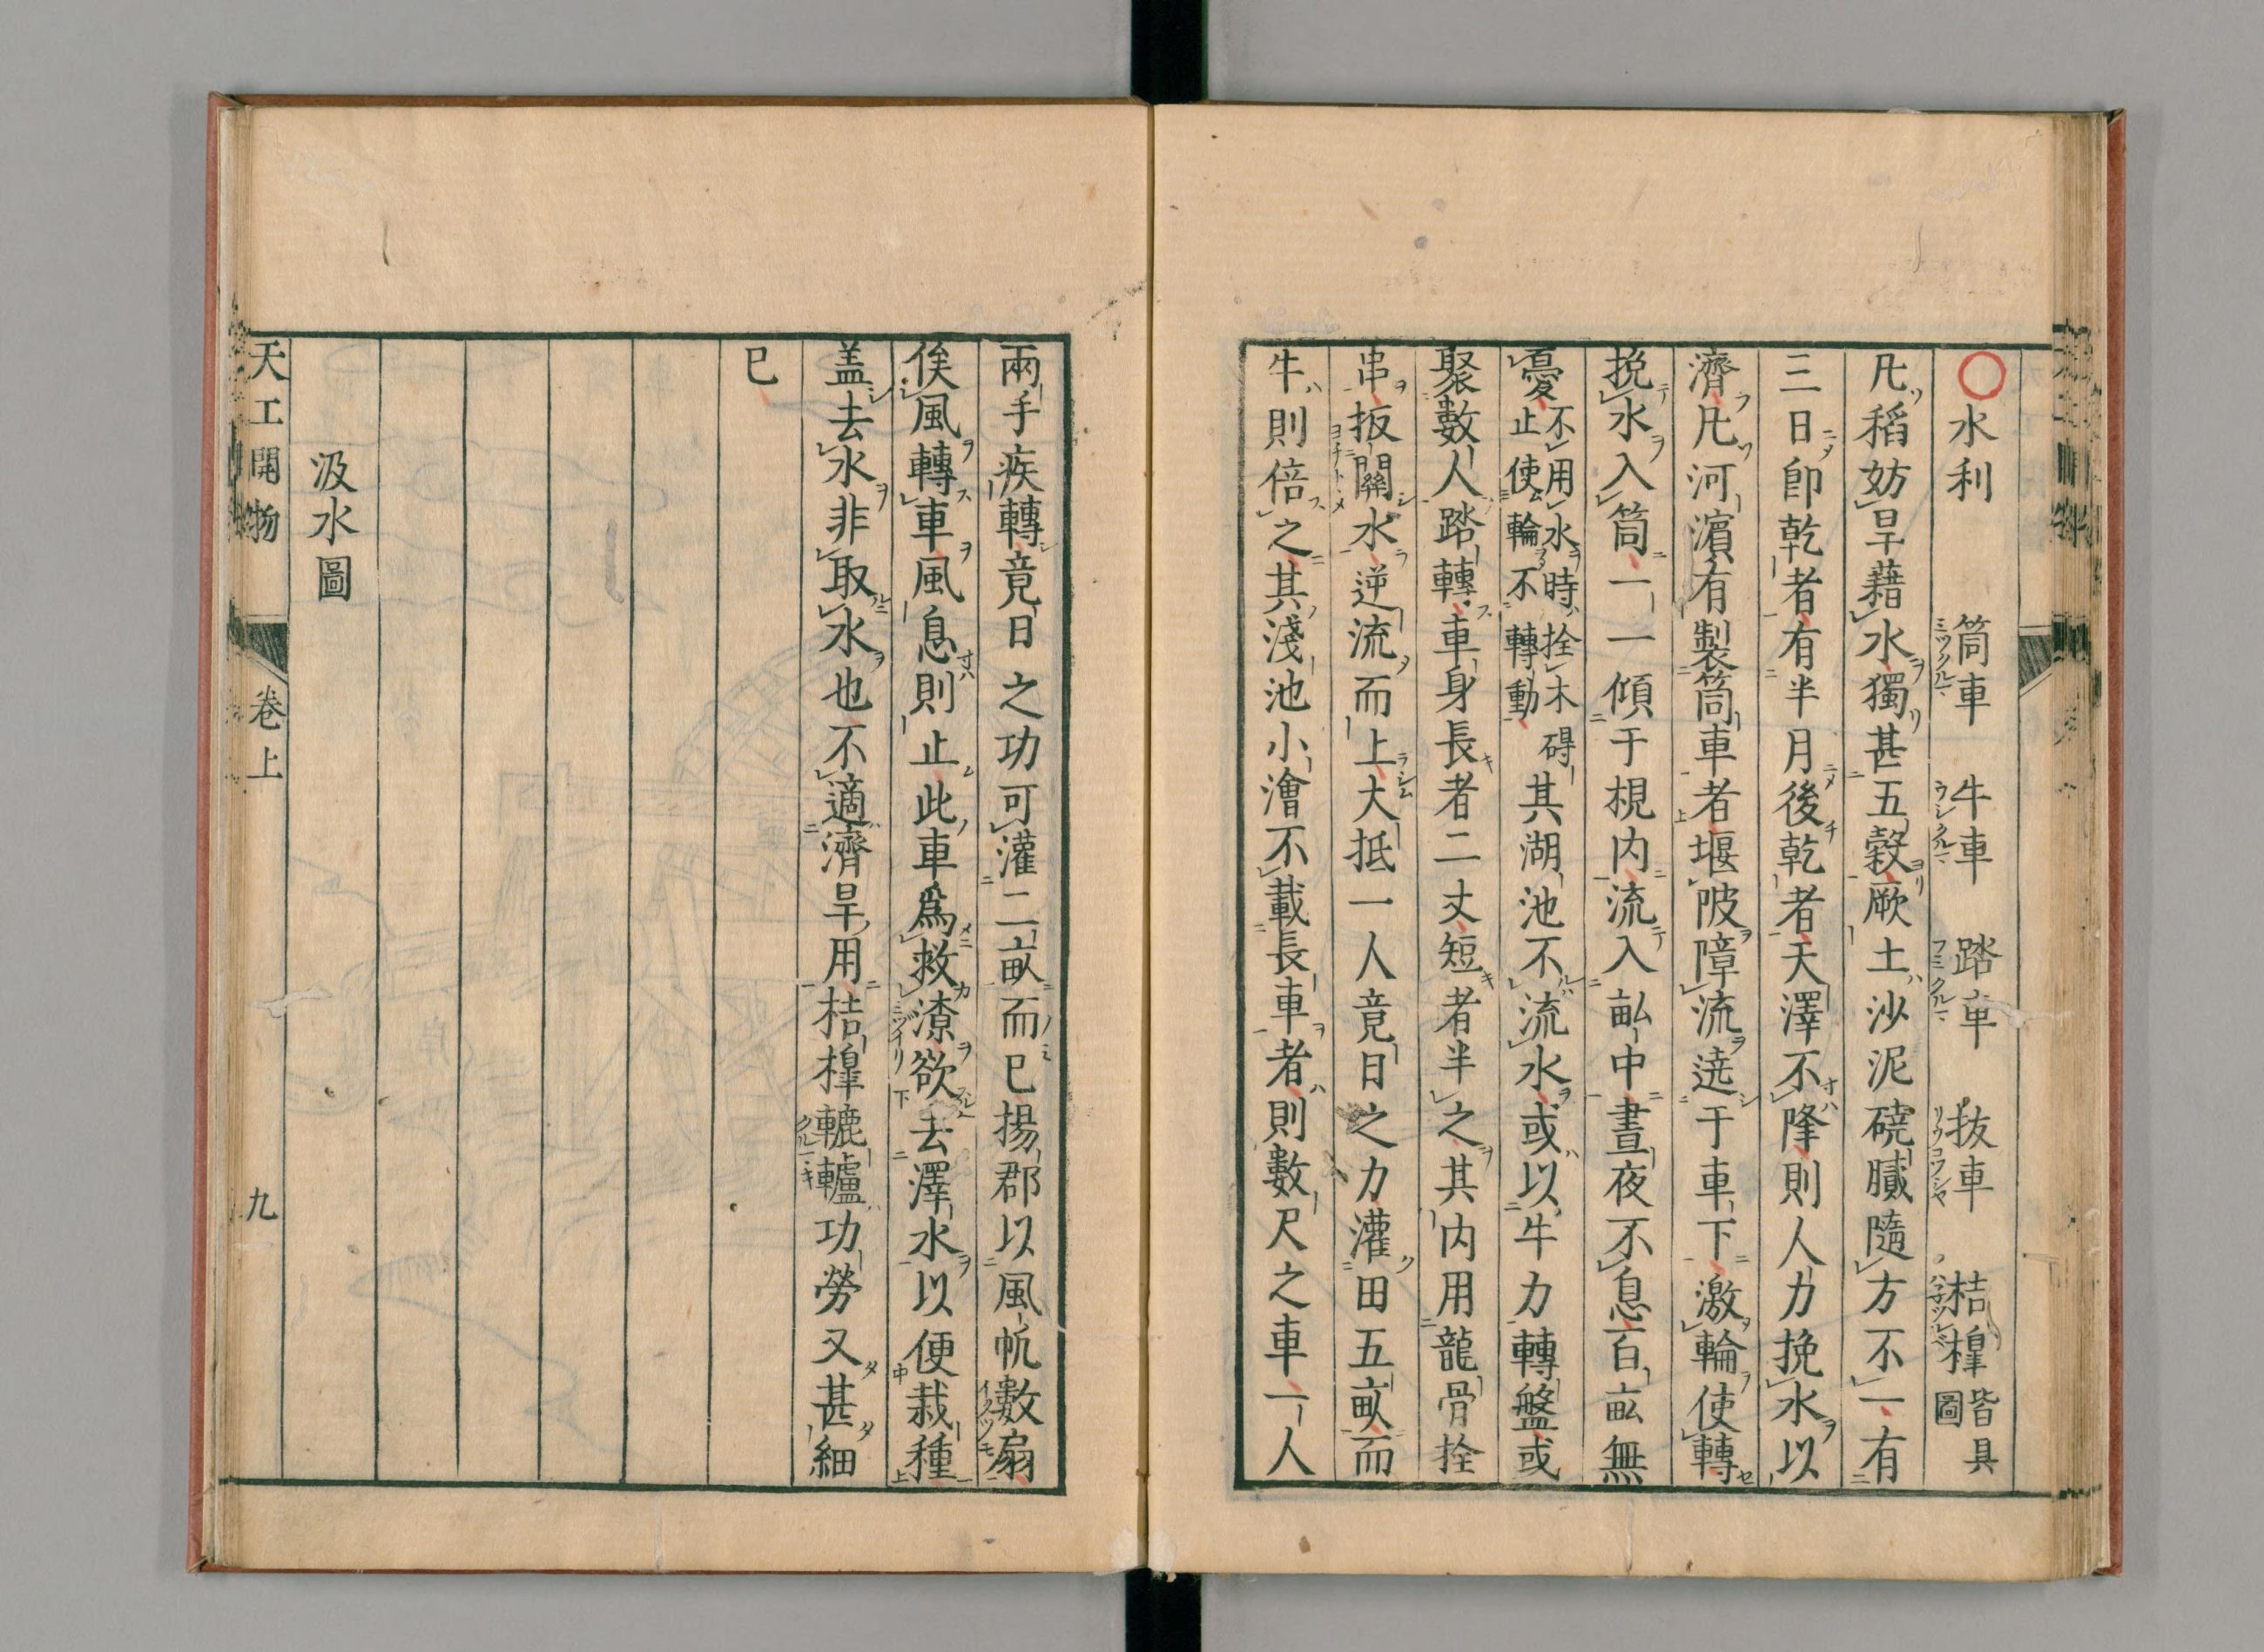 ○水利　筒車　牛車　踏車　拔車　桔槹　皆具圖
凢稻妨旱藉水獨甚五穀厥土沙泥磽膩隨方不一有
三日卽乾者有半月後乾者天澤不降則人力挽水以
濟凢河濵有製筒車者堰陂障流遶于車下激輪使轉
挽水入筒一一傾于梘内流入畆中晝夜不息百畆無
憂不用水時拴木碍止使輪不轉動其湖池不流水或以牛力轉盤或
聚數人踏轉車身長者二丈短者半之其内用龍骨拴
串扳關水逆流而上大抵一人竟日之力灌田五畝而
牛則倍之其淺池小澮不載長車者則數尺之車一人
兩手疾轉竟日之功可灌二畝而已揚郡以風帆數扇
俟風轉車風息則止此車爲救潦欲去澤水以便栽種
盖去水非取水也不適濟旱用桔槹轆轤功勞又甚細
已
汲水圖
天工開物　卷上　九